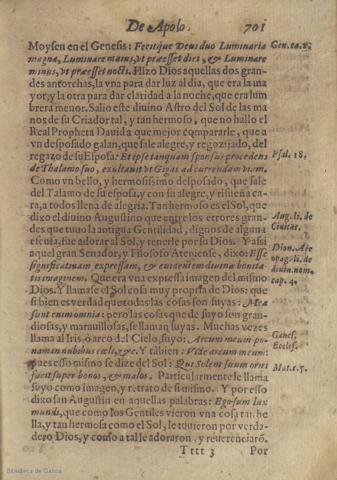 De Apolo. 701
Moysen en el Genesis: Fecitque Deus duo Luminaria
magna, Luminare maius, vt praesset diei, & Luminare
minus, vt praesset nocti. Hizo Dios aquellas dos gran-
des antorchas, la vna para dar luz al dia, que era la ma
yor, y la otra para dar claridad a la noche, que era lum
brera menor. Salio este diuino Astro del Sol de las ma
nos de su Criador tal, y tan hermoso, que no hallo el
Real Propheta Dauid a que mejor compararle, que a
vn desposado galan, que sale alegre, y regozijado, del
regazo de su Esposa: Et ipse tanquam sponsus procedens
de Thalamo suo, exultauit vt Gigas ad currendam viam.
Como vn bello, y hermosissimo desposado, que sale
del Talamo de su esposa, y con su alegre, y risueña ca-
ra, a todos llena de alegria. Tan hermoso es el Sol, que
dixo el diuino Augustino que entre los errores gran-
des que tuuo la antigua Gentilidad, dignos de alguna
escusa, fue adorar al Sol, y tenerle por su Dios. Y assi
aquel gran Senador, y Filosofo Ateniense, dixo: Esse
significatiuam expressam, & euidentem diuinae bonita-
tis imaginem. Que era vna expressa imagen del mismo
Dios. Y llamase el Sol cosa muy propia de Dios: que
si bien es verdad que todas las cosas son suyas: Mea
sunt enim omnia: pero las cosas que de suyo son gran-
diosas, y marauillosas, se llaman suyas. Muchas vezes
llama al Iris, o arco del Cielo, suyo: Arcum meum po-
nam in nubibus coeli, &c. Y tābien: Vide arcum meum:
pues esso mismo se dize del Sol: Qui Solem suum oriri
facit super bonos, & malos. Particularmente le llama
suyo como imagen, y retrato de si mismo. Y por esso
dixo san Augustin en aquellas palabras: Ego sum lux
mundi, que como los Gentiles vieron vna cosa tan be
lla, y tan hermosa como el Sol, le tuuieron por verda-
dero Dios, y como a tal le adoraron, y reuerenciarō.
Tttt 3 Por
Psal. 18.
Aug. li. de
Ciuitat.
Dion. Are
opag. li. de
diuin. nom.
cap. 4.
Genes.
Eccles.
Mat. c. 5.
Biblioteca de Galicia